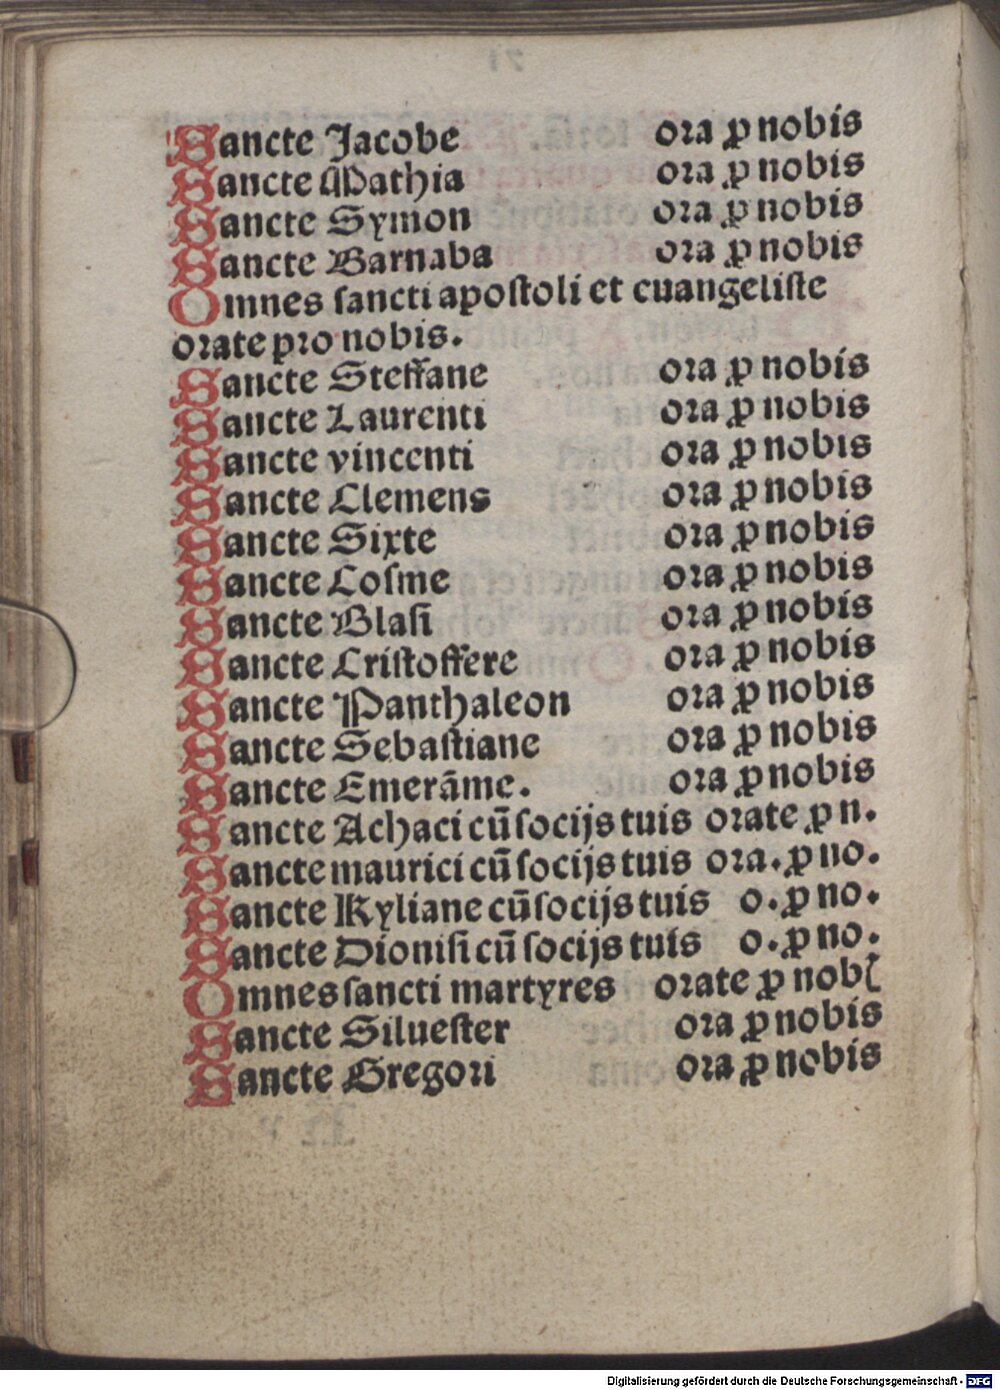 Sancte Jacobe ora ꝓ nobis
Sancte Mathia ora ꝓ nobis
Sancte Symon ora ꝓ nobis
Sancte Barnaba ora ꝓ nobis
Omnes sancti apostoli et euangeliste
orate pro nobis.
Sancte Steffane ora ꝓ nobis
Sancte Laurenti ora ꝓ nobis
Sancte vincenti ora ꝓ nobis
Sancte Clemens ora ꝓ nobis
Sancte Sixte ora ꝓ nobis
Sancte Cosme ora ꝓ nobis
Sancte Blasi ora ꝓ nobis
Sancte Cristoffere ora ꝓ nobis
Sancte Panthaleon ora ꝓ nobis
Sancte Sebastiane ora ꝓ nobis
Sancte Emerāme. ora ꝓ nobis
Sancte Achaci cū socijs tuis orate ꝓ n.
Sancte maurici cū socijs tuis ora. ꝓ no.
Sancte Kyliane cū socijs tuis o. ꝓ no.
Sancte Dionisi cū socijs tuis o. ꝓ no.
Omnes sancti martyres orate ꝓ nobꝭ
Sancte Siluester ora ꝓ nobis
Sancte Gregori ora ꝓ nobis
Digitalisierung gefördert durch die Deutsche Forschungsgemeinschaft - DFG